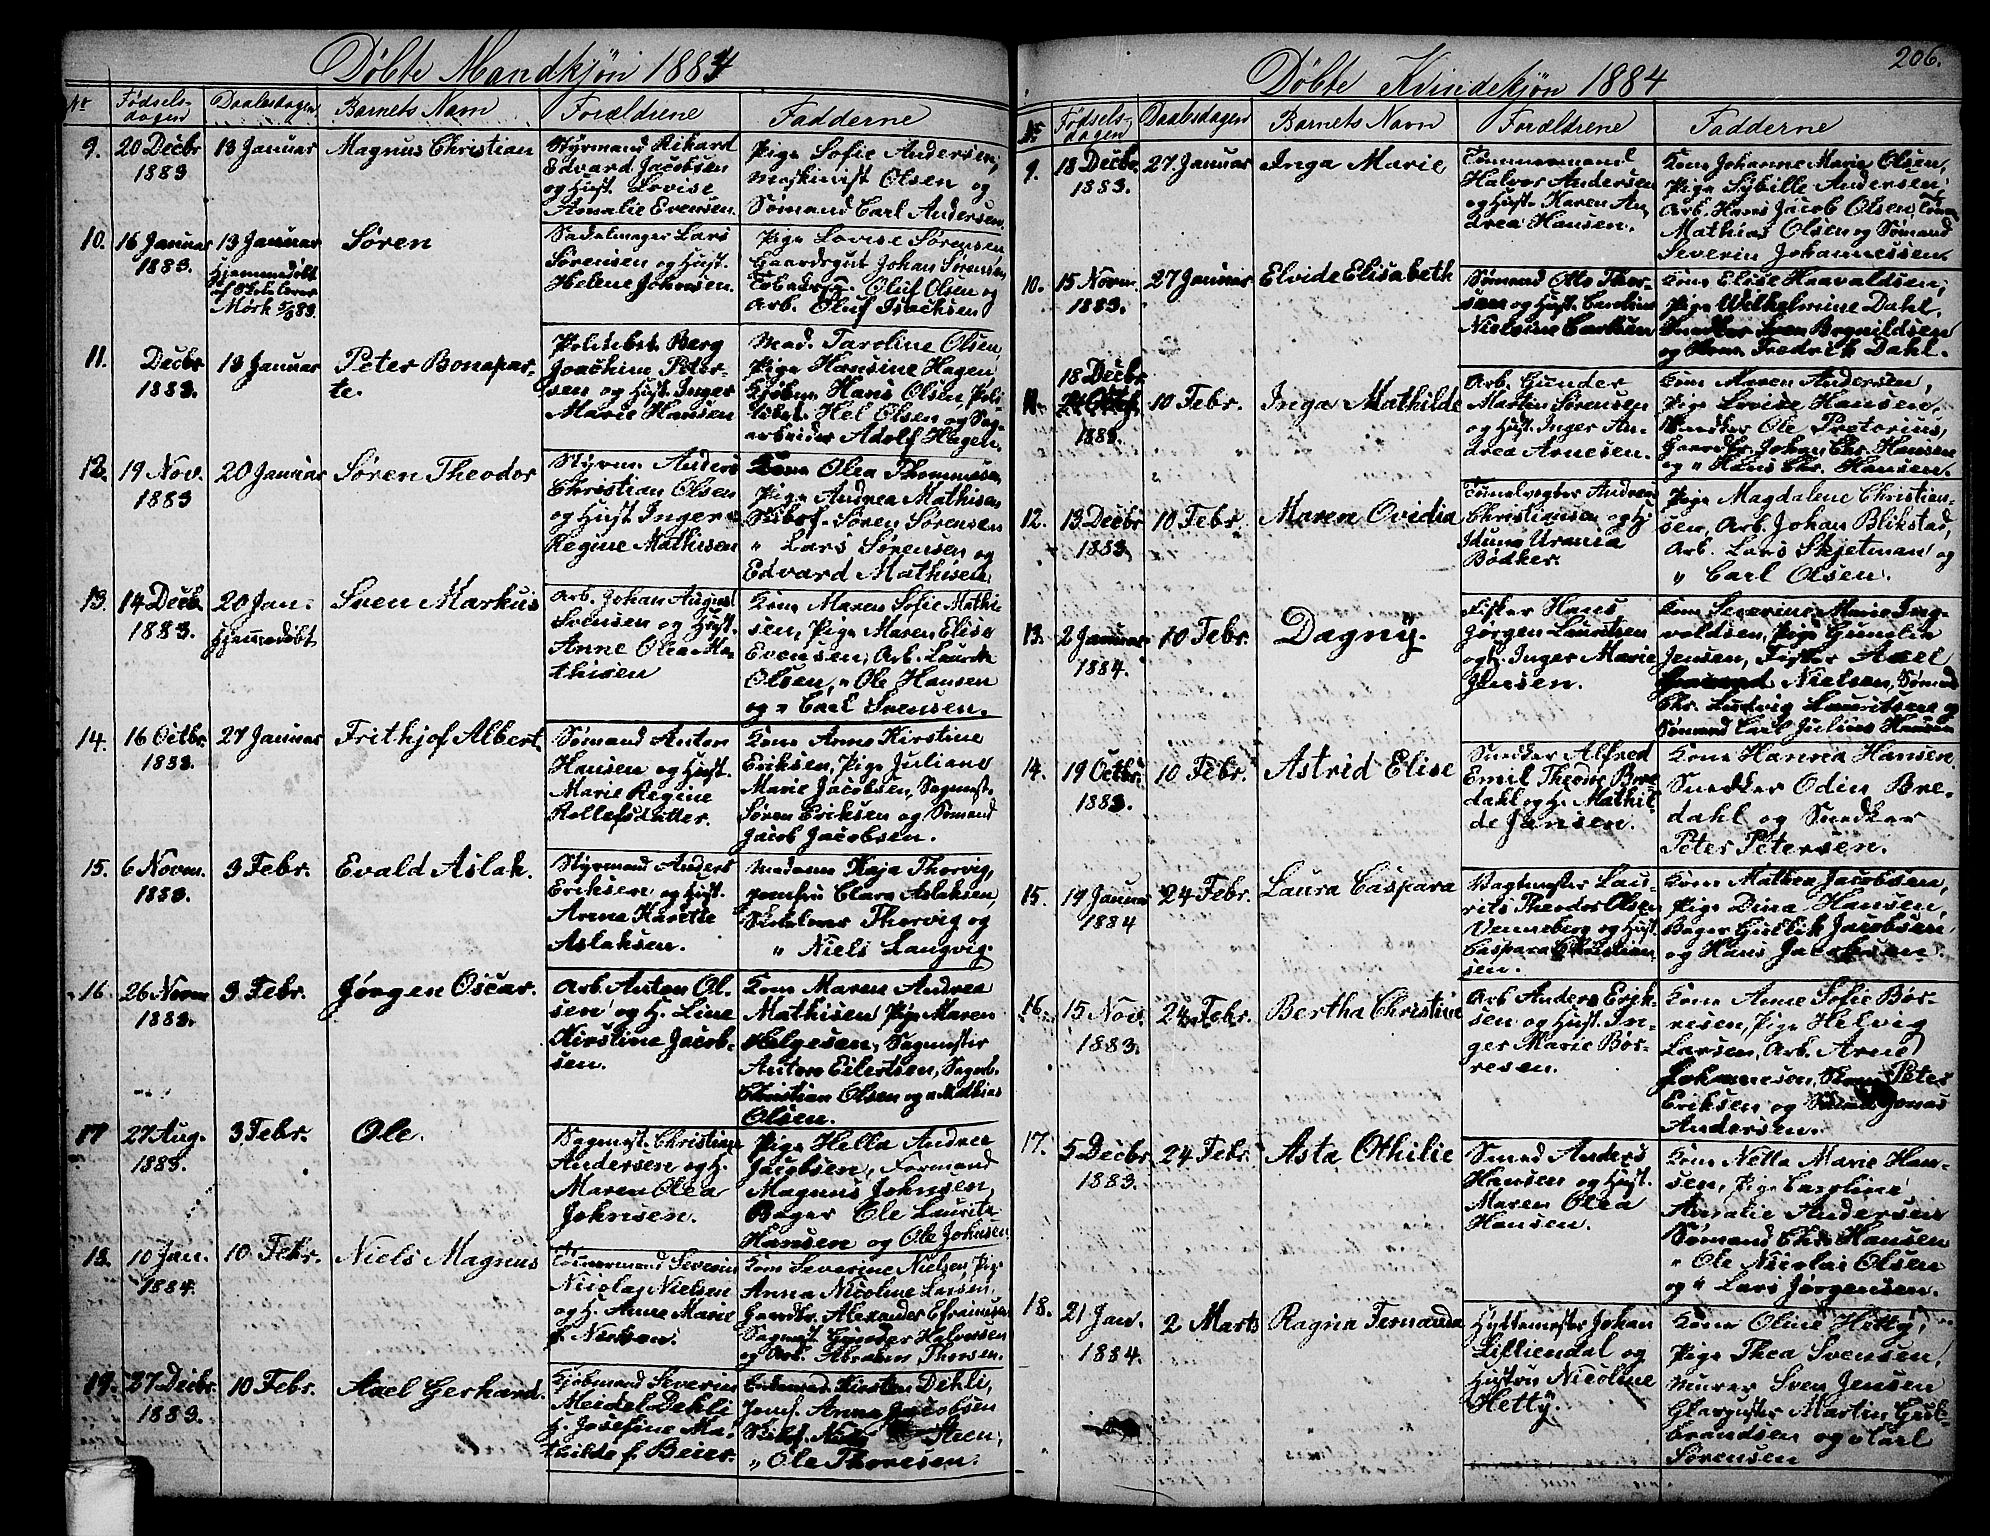 Døbte Mandkjøn 1884
No Fødselsdagen Daabsdagen Barnets Navn Forældrene Fadderne
9. 20 Decbr 1883 13 Januar Magnus Christian
Styrmand Rikard
Edvard Jacobsen
og Hust. Lovise
Amalie Evensen.
Pige Sofie Andersen,
Maskinist Olsen og
Sømand Carl Andersen.
10. 16 Januar 1883. 13 Januar Søren
Hjemmedøbt
Mørk 5/8 83.
Sadelmager Lars
Sørensen og Hust.
Helene Johnsen.
Pige Lovise Sørensen
Gaardsgut Johan Sørensen
Oluf Olsen og
Arb. Oluf Isachsen
11. Decbr 1883. 13 Januar Peter Bonapar-
te.
Politibet. Berg
Joachim Peter-
sen og Hust. Inger
Marie Hansen
Mad. Caroline Olsen,
Pige Hansine Hagen
Kjøbm. Hans Olsen, Poli-
tibet. Hel Olsen og Sag-
arbeider Adolf Hagen.
12. 19 Nov. 1883 20 Januar Søren Theodor
Styrm. Anders
Christian Olsen
og Hust Inger
Regine Mathisen
Kone Olea Thommesen,
Pige Andrea Mathisen
Skibsf. Søren Sørensen
" Lars Sørensen og
Edvard Mathisen
13. 14 Decb. 1883. 20 Jan. Sven Markus
Hjemmedøbt
Arb. Johan August
Svensen og Hust.
Anne Olea Ma-
thisen
Kone Maren Sofie Mathi
sen, Pige Maren Elise
Evensen, Arb. Lauritz
Olsen, " Ole Hansen
og " Carl Svensen.
14. 16 Octbr. 1883. 27 Januar Frithjof Albert
Sømand Anton
Hansen og Hust.
Marie Regine
Rollefsdatter.
Kone Anne Kirstine
Eriksen, Pige Juliane
Marie Jacobsen, Sagmest.
Søren Eriksen og Sømand
Jacob Jacobsen.
15. 6 Novem. 1883. 3 Febr. Evald Aslak.
Styrmand Anders
Eriksen og Hust.
Anna Karette
Aslaksen.
Madame Kaja Thorvig,
Jomfru Clara Aslaksen,
Thorvig og
" Niels Langvig.
16. 26 Novm 1883. 3 Febr. Jørgen Oscar.
Arb. Anton Ol-
sen og H. Line
Kirstine Jacob-
sen.
Kone Maren Andrea
Mathisen Pige Maren
Helgesen, Sagmester
Anton Eilertsen, Sagarb.
Christian Olsen og " Mathias
Olsen.
17. 27 Aug. 1883. 3 Febr. Ole.
Sagmest. Christian
Andersen og H.
Maren Olea
Johnsen.
Pige Hella Andrea
Jacobsen, Formand
Magnus Johnsen,
Bager Ole Lauritz
Hansen og Ole Johnsen
18. 10 Jan. 1884. 10 Febr. Niels Magnus
Tømmermand Severin
Nicolay Nielsen
og H. Anne Marie
f. Nielsen.
Kone Severine Nielsen, Pige
Anna Nicoline Larsen,
Gaardbr. Alexander Efraimsen
Sagmest. Gunder Halvorsen
og Arb. Abraham Thorsen.
19. 27 Decbr. 1883. 10 Febr. Axel Gerhard.
Kjøbmand Severin
Meidel Dehli
H. Josefine Ma-
thilde f. Beier.
Kirsten Dehli,
Jomf. Anna Jacobsen
Skibsf. Steen,
" Ole Thoresen.
206.
Døbte Kvindekjøn 1884
No Fødselsdagen Daabsdagen Barnets Navn Forældrene Fadderne
9. 18 Decbr. 1883. 27 Januar Inga Marie
Tømmermand
Halvor Andersen
og Hust. Karen An
drea Hansen.
Kone Johanne Marie Olsen,
Pige Sybille Andersen,
Arb. Hans Jacob Olsen,
Mathias Olsen og Sømand
Severin Johannessen.
10. 15 Novm. 1883. 27 Januar Elvide Elisabeth
Sømand Otto Thor-
sen og Hust. Caroline
Nielsine Carlsen
Kone Elise Haavaldsen,
Pige Wilhelmine Dahl.
Snedker Sven Bognildsen
og Fredrik Dahl.
11. 18 Decbr 1883. 10 Febr. Inga Mathilde
Arb. Gunder
Martin Sørensen
og Hust. Inger An
drea Arnesen.
Kone Maren Andersen,
Pige Lovise Hansen,
Snedker Ole Pretorius,
Gaardbr. Johan Chr. Hansen
og " Hans Chr. Hansen.
12. 13 Decbr 1883. 10 Febr. Maren Ovidia
Andreas
Christiansen og H.
Iduna Urania
Bødker.
Pige Magdalene Christian-
sen, Arb. Johan Blikstad,
Arb. Lars Skjetman og
" Carl Olsen.
13. 2 Januar 1884. 10 Febr. Dagny.
Fisker Hans
Jørgen Lauritsen
og H. Inger Marie
Jensen.
Kone Severine Marie Ing-
valdsen, Pige Gunelia
Jensen, Fisker Axel
Nielsen, Sømand
Chr. Ludvig Lauritsen og
Sømand Carl Julius Hansen
14. 19 Octbr. 1883. 10 Febr. Astrid Elise
Snedker Alfred
Emil Theodor Bre
dahl og H. Mathil
de Jansen.
Kone Hanna Hansen.
Snedker Odin Bre-
dahl og Snedker
Peter Petersen.
15. 19 Januar 1884 24 Febr. Laura Caspara
Vagtmester Lau-
rits Theodor Olsen
Venneberg og Hust.
Caspara Christian
sen.
Kone Mathea Jacobsen,
Pige Dina Hansen,
Bager Gullik Jacobsen
og Hans Jacobsen
16. 15 Nov. 1883. 24 Febr. Bertha Christine
Arb Anders Erik-
sen og Hust. In-
ger Marie Bør-
resen.
Kone Anne Sofie Bør-
resen, Pige Helvig
Larsen, Arb. Arne
Johannesen, Peter
Eriksen og Jonas
Andersen.
17. 5 Decbr 1883. 24 Febr. Asta Othilie
Smed Anders
Hansen og Hust.
Maren Olea
Hansen.
Kone Nella Marie Han-
sen, Pige Caroline
Amalie Andersen
Sømand Chr. Hansen
" Ole Nicolai Olsen
og " Lars Jørgensen.
18. 21 Jan. 1884. 2 Marts Ragna Fernanda
Hyttemester Johan
Lilliendal og
Hustru Nicoline
Hetty.
Kone Oline Hetty,
Pige Thea Svensen,
Murer Sven Jensen
Glasmester Martin Gul-
brandsen og Carl
Sørensen